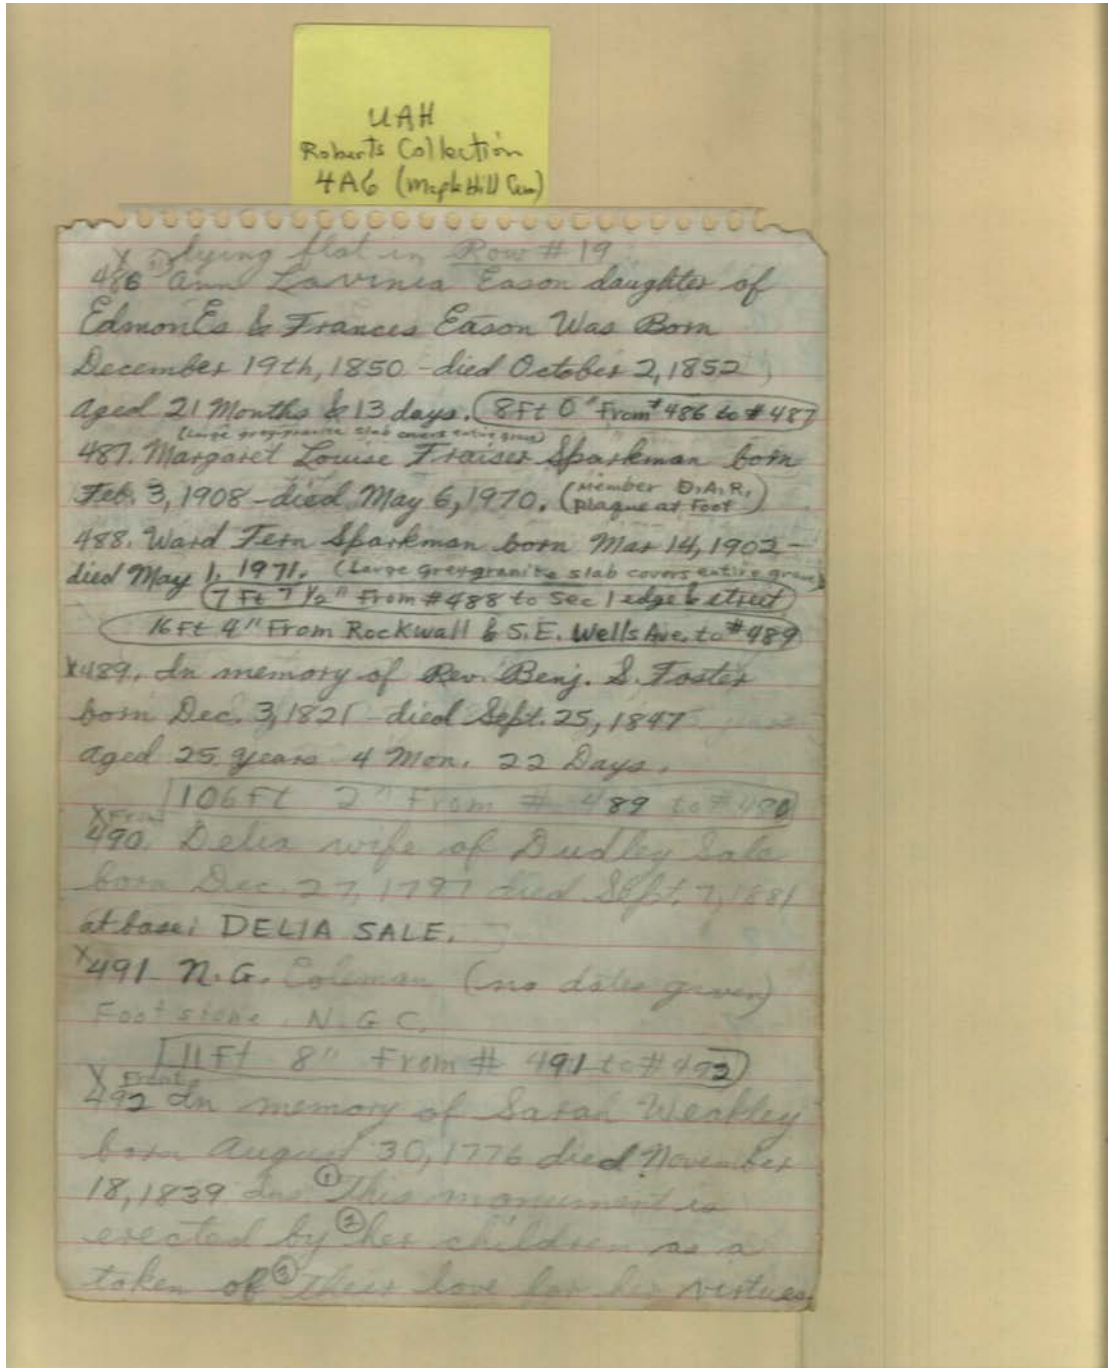 UAH
Roberts Collection
4A6 (Maple Hill Cem)
X lying flat in Row # 19
486 Ann Lavinia Eason daughter of
Edmon Es & Frances Eason Was Born
December 19th, 1850 - died October 2, 1852,
aged 21 Months & 13 days. (8Ft 0" From #486 to #487
(Large grey granite slab covers entire grave)
487. Margaret Louise Fraiser Sparkman born
Feb. 3, 1908 - died May 6, 1970. (Member D.A.R.
plaque at Foot)
488. Ward Fern Sparkman born Mar 14, 1902 -
died May 1, 1971. (Large Grey granite slab covers entire grave)
(7 Ft 7 1/2" From #488 to Sec 1 edge & street)
(16 Ft 4" From Rockwall & S.E. Wells Ave. to #489
X489. In memory of Rev. Benj. S. Foster
born Dec. 3, 1821 - died Sept. 25, 1847
aged 25 years 4 Mon. 22 Days.
106 Ft 2" From # 489 to #490
X Front
490. Delia wife of Dudley Sale
born Dec. 27, 1797 died Sept. 7, 1881
at base: DELIA SALE.
X491 N. G. Coleman (no dates given)
Footstone N. G. C.
[11 Ft 8" From # 491 to #492)
X Front
492 In memory of Sarah Weakley
born August 30, 1776 died November
18, 1839 ① This monument is
erected by ② her children as a
token of ③ their love for her virtues,